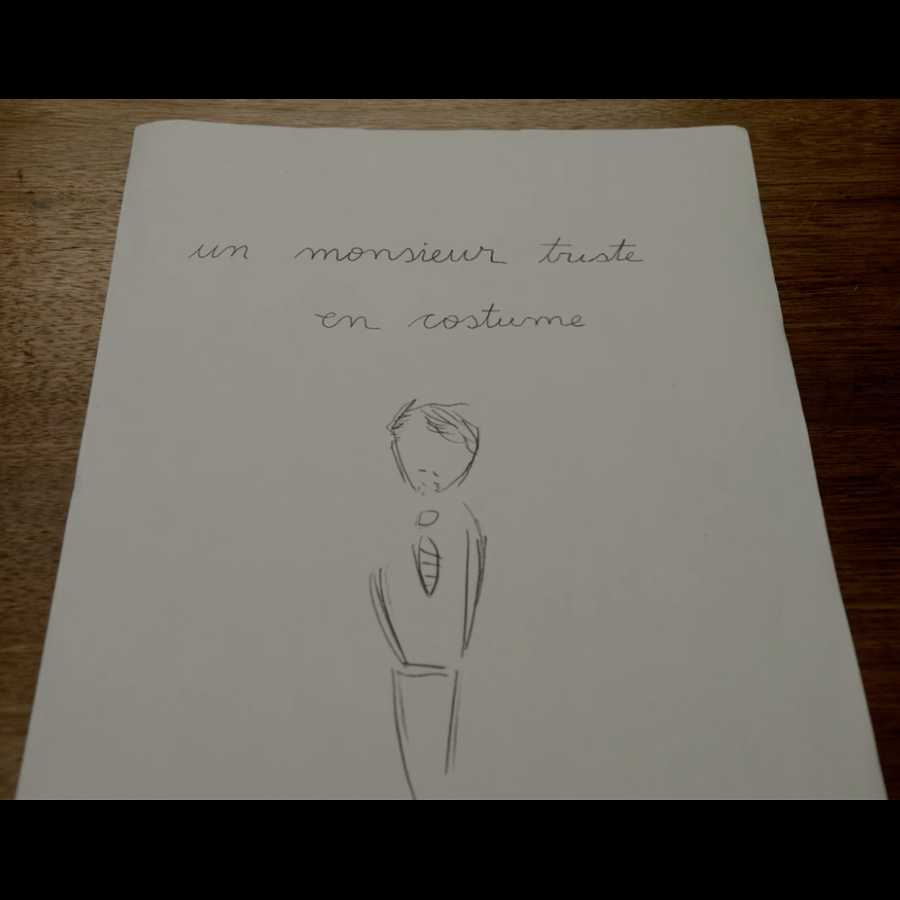 un monsieur triste
en costume